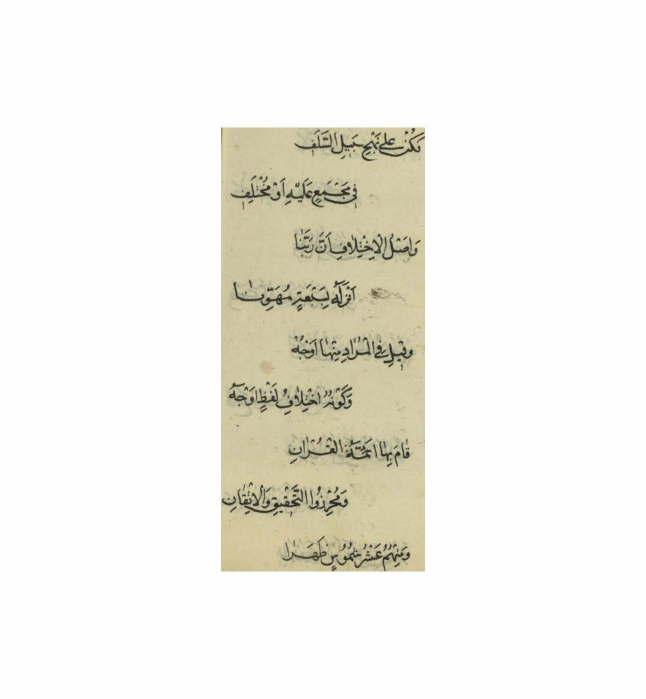 فَكُنْ عَلَى نَهْجِ سَبِيلِ السَّلَفِ
فِي مُجْمَعٍ عَلَيْهِ أَوْ مُخْتَلَفِ
وَأَصْلُ الِاخْتِلَافِ أَنَّ رَبَّنَا
أَنْزَلَهُ بِسَبْعَةٍ مُهَوِّنَا
وَقِيلَ فِي الْمُرَادِ مِنْهَا أَوْجُهُ
وَكَوْنُهُ اخْتِلَافُ لَفْظٍ أَوْجَهُ
قَامَ بِهَا أَئِمَّةُ الْقُرْآنِ
وَمُحْرِزُوا التَّحْقِيقِ وَالْإِتْقَانِ
وَمِنْهُمُ عَشْرُ شُمُوسٍ ظَهَرَا